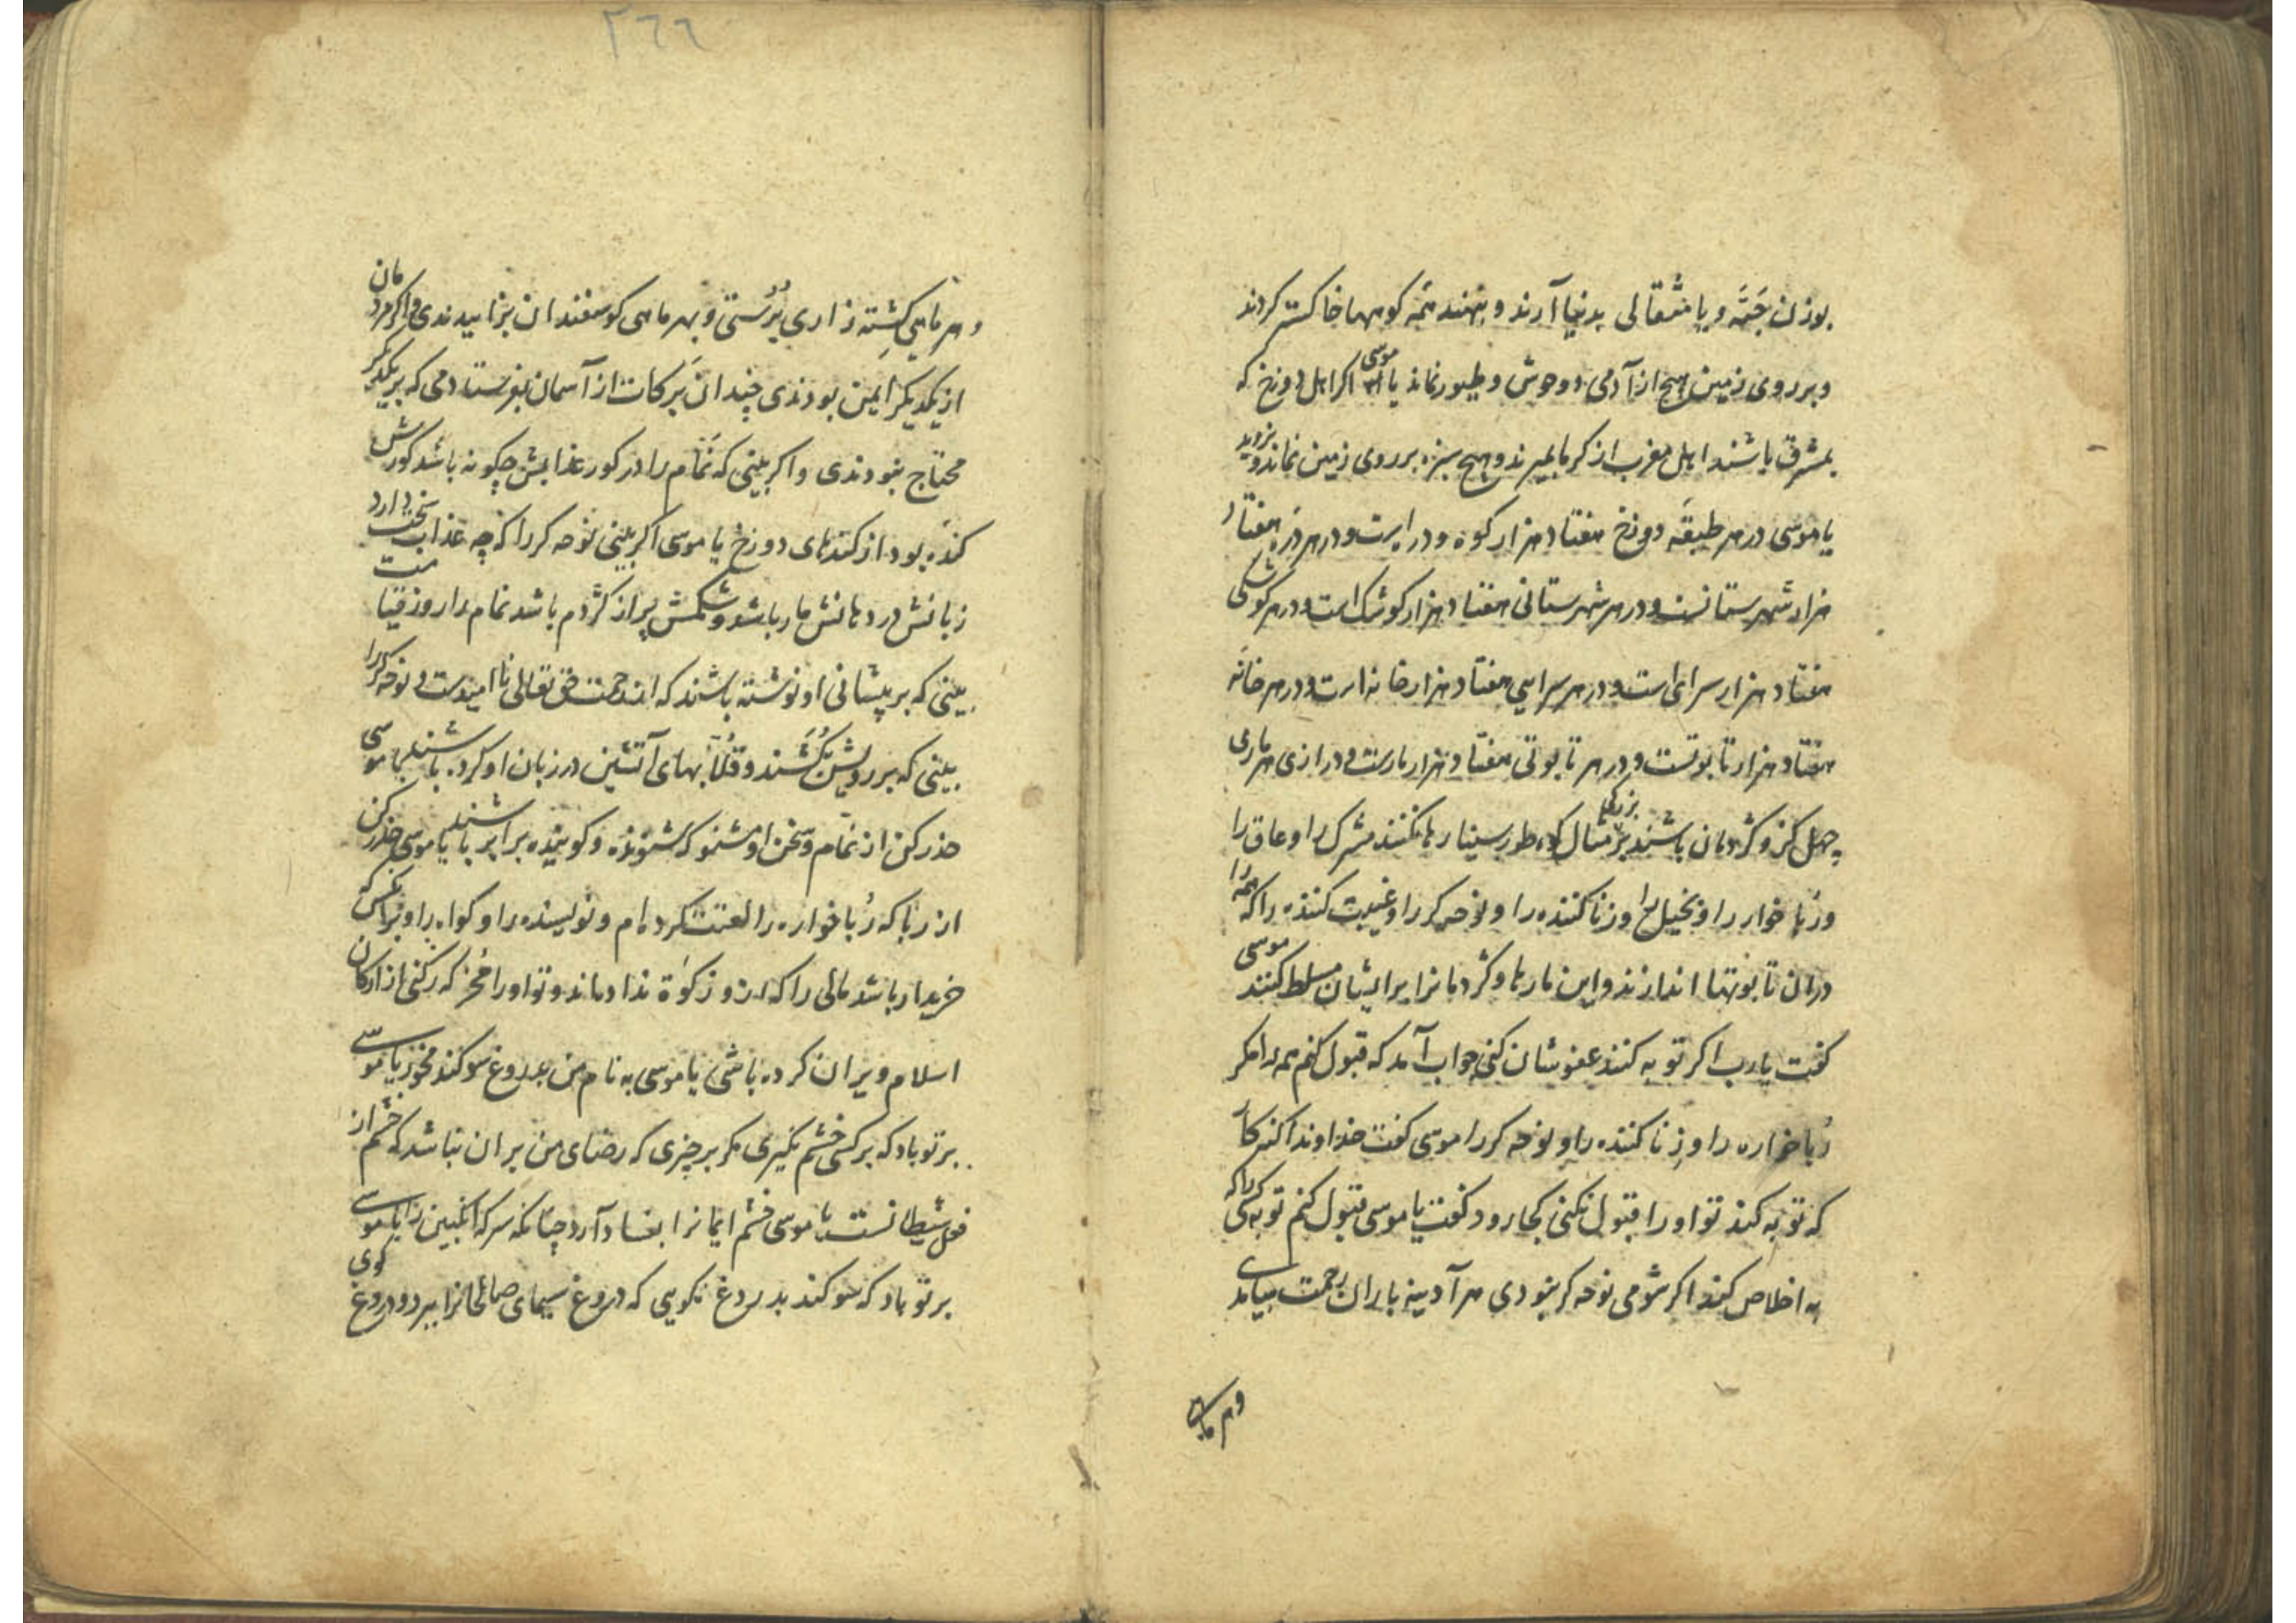 بوزن حَبَّه و یا مثقالی بدنیا آرند و بنهند همَه کوهها خاکستر کردند
و بر روی زمین هیچ از آدمی و وحوش و طیور نماند یا موسی اکر اهل دوزخ که
بمشرق باشند اهل مغرب از کرما بمیرند و هیچ سبزه بر روی زمین نماند و نروید
یا موسی در هر طبقَه دوزخ هفتاد هزار کوه و در است و در هر درَه هفتاد
هزار شهرستانست و در هر شهرستانی هفتاد هزار کوشک است و در هر کوشکی
هفتاد هزار سرای است و در هر سرایی هفتاد هزار خانه است و در هر خانَه
هفتاد هزار تابوتست و در هر تابوتی هفتاد هزار مارست و درازی هر ماری
چهل کز و کژدمان باشند بر مثال بزرکی کوه طور سینا رها نکنند مشرک را و عاق را
و رُباخوار را و بخیل را و زنا کننده را و نوحه کر را و غیبت کننده را که همه را
در ان تابوتها اندازند و این مارها و کژدمانرا بر ایشان مسلط کنند موسی
کفت یا رب اکر توبه کنند عفوشان کنی جواب آمد که قبول کنم همه را مکر
رُباخواره را و زِنا کننده را و نوحه کر را موسی کفت خداوندا کنه کار
که توبه کند تو او را قبول نکنی کجا رود کفت یا موسی قبول کنم توبه کسی را که
به اخلاص کند اکر شومی نوحه کر نبودی هر آدینه باران رحمت بیامدی
و هر ماهی
٢٦٦
و هر ماهی کِشته زاری بُرُستی و بهر ماهی کوسفندان بزاییدندی و اکر مردمان
از یکدیکر ایمن بودندی چندان بَرَکات از آسمان بفرستادمی که بر یکدیکر
محتاج نبودندی و اکر ببینی که نَمّام را در کور عذابش چکونه باشد کورش
کندَه بود از کندهای دوزخ یا موسی اکر ببینی نوحه کر را که چه عذاب سخت دارد
زبانش در دهانش مار باشد و شکمش پر از کژدم باشد نمام را روز قیامت
ببینی که بر پیشانی او نوشته باشند که از رحمت حق تعالی ناامیدست و نوحه کر را
ببینی که بر رویش بکُشند و قُلّابهای آتشین در زبان او کرده باشند یا موسی
حذر کن از نمّام و سخن او مشنو که شنونده و کوینده برابر باشند یا موسی حذر کن
از ربا که رُباخواره را لعنت کرده‌ام و نویسنده را و کواه را و هر آنکس که
خریدار باشد مالی را که از و زکوٰة نداده‌اند و تو او را مَخر که رکنی از ارکان
اسلام ویران کرده باشی یا موسی به نام من بدروغ سوکند مخور یا موسی
بر تو باد که بر کسی خشم نکیری مکر بر چیزی که رضای من بر ان نباشد که خشم از
فعل شیطانست یا موسی خشم ایمانرا بفساد آرد چنانکه سرکه انکبین را یا موسی
بر تو باد که سوکند بدروغ نکویی که دروغ سیمای صالحانرا ببرد و دروغ کوی